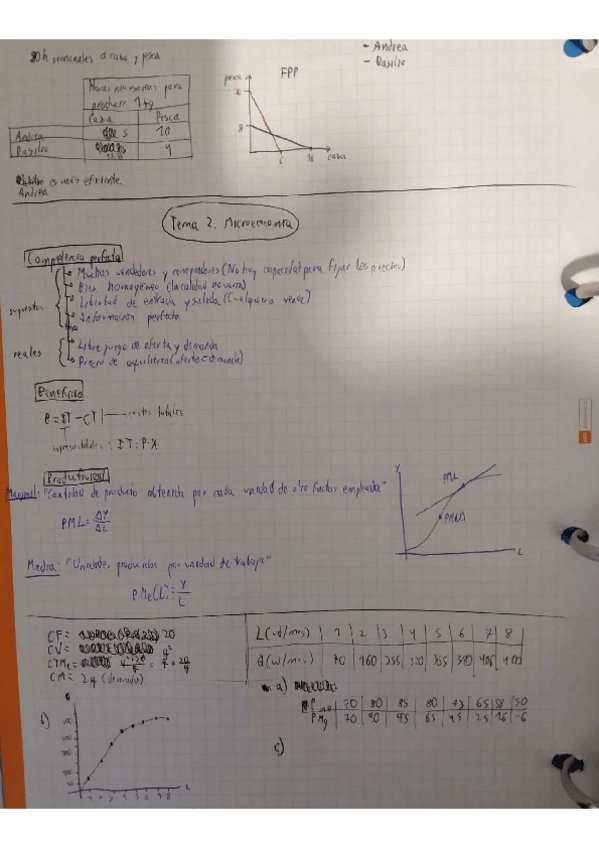 semanales a caza y pesca
- Andrea
- Basilio
Horas necesarias para
producir 1 kg
Caza | Pesca
Andrea | 5 | 10
Basilio | 4
FPP
pesca
8
caza
es más eficiente
Andrea
Tema 2. Microeconomía
Competencia perfecta
supuestos
Muchos vendedores y compradores (No hay capacidad para fijar los precios)
Bien homogéneo (la calidad no varía)
Libertad de entrada y salida (Cualquiera vende)
Información perfecta
reales
Libre juego de oferta y demanda
Precio de equilibrio (oferta = demanda)
Beneficio
B = IT - CT costes totales
: IT = P·X
Productividad
Marginal: "Cantidad de producto obtenida por cada unidad de otro factor empleada"
PML = ΔY/ΔL
Y
PML
L
Media: "Unidades producidas por unidad de trabajo"
PMe(L) = Y/L
CF = 20
CV = q²
CTMe =
CM = 2q (derivada)
L (ud/mes) | 1 | 2 | 3 | 4 | 5 | 6 | 7 | 8
Q (u/mes) | 70 | 160 | 255 | 320 | 365 | 390 | 406 | 400
a)
70 | 80 | 85 | 80 | 73 | 65 | 58 | 50
PMg | 70 | 90 | 95 | 65 | 45 | 25 | 16 | -6
b)
c)